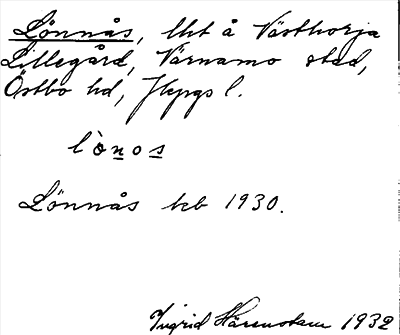 Lönnås, lht å Västhorja
Lillegård, Värnamo stad,
Östbo hd, Jkpgs l.
lònos
Lönnås kb 1930.
Ingrid Härenstam 1932